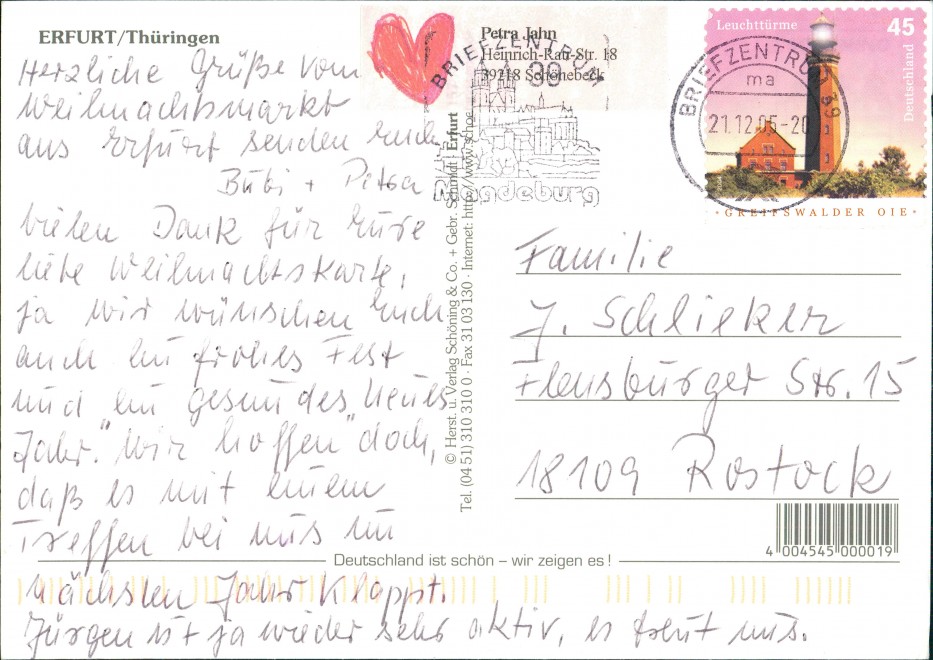 ERFURT/Thüringen
Herzliche Grüße vom
Weihnachtsmarkt
aus Erfurt senden Euch
Bübi + Petra
Vielen Dank für Eure
liebe Weihnachtskarte,
ja wir wünschen Euch
auch ein frohes Fest
und "ein gesundes Neues
Jahr." Wir hoffen doch,
daß es mit einem
Treffen bei uns im
nächsten Jahr klappt.
Jürgen ist ja wieder sehr aktiv, es freut uns.
© Herst. u. Verlag Schöning & Co. + Gebr. Schmidt | Erfurt
Tel. (04 51) 310 310 0 · Fax 31 03 130 · Internet: http://www.schoe
Petra Jahn
Heinrich-Rau-Str. 18
39218 Schönebeck
BRIEFZENTRUM
39
Magdeburg
BRIEFZENTRUM 39
ma
21.12.05-20
Leuchttürme
45
Deutschland
·GREIFSWALDER OIE·
Familie
J. Schlieker
Flensburger Str. 15
18109 Rostock
4 004545 000019
Deutschland ist schön – wir zeigen es!